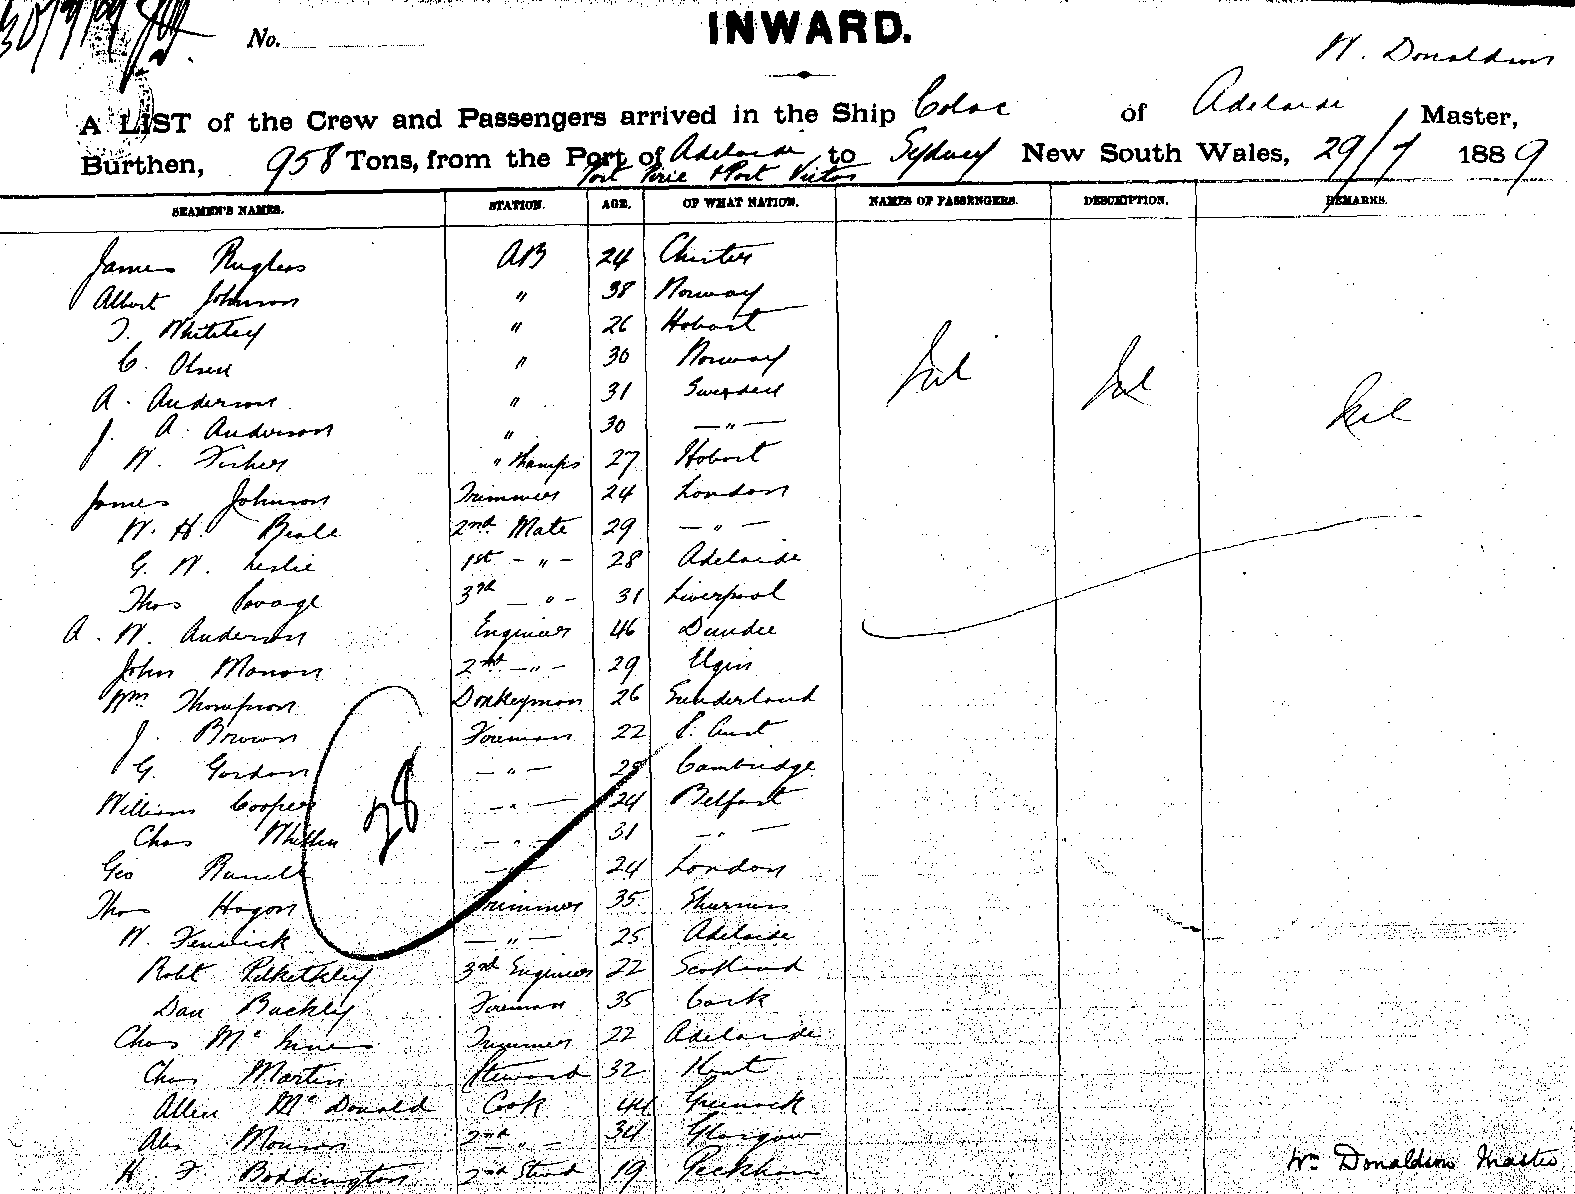 30/7/89
No.
INWARD.
W. Donaldson
A LIST of the Crew and Passengers arrived in the Ship Colac of Adelaide Master,
Burthen, 958 Tons, from the Port of Adelaide to Sydney New South Wales, 29/7 1889
Port Pirie & Port Victor
SEAMEN'S NAMES. STATION. AGE. OF WHAT NATION. NAMES OF PASSENGERS. DESCRIPTION. REMARKS.
James AB 24 Chester
Albert Johnson " 38 Norway
T. Whiteley " 26 Hobart
C. Olsen " 30 Norway
A. Anderson " 31 Sweden
J. A. Anderson " 30 — " —
W. Fisher " Lamps 27 Hobart
James Johnson Trimmer 24 London
W. H. Beale 2nd Mate 29 — " —
G. W. Leslie 1st - " - 28 Adelaide
Thos Savage 3rd - " - 31 Liverpool
A. W. Anderson Engineer 46 Dundee
John 2nd - " - 29 Elgin
Wm Thompson Donkeyman 26 Sunderland
J. Brown Fireman 22 S. Aust
G. Gordon — " — 29 Cambridge
William Cooper — " — 24 Belfast
Chas — " — 31 — " —
Geo Russell — " — 24 London
Thos Hogan Trimmer 35
W. Fenwick — " — 25 Adelaide
Robt 3rd Engineer 22 Scotland
Dan Buckley Fireman 35 Cork
Chas Trimmer 22 Adelaide
Chas Martin Steward 32 Kent
Allen McDonald Cook 44 Greenock
Alex 2nd " — 34 Glasgow
H. F. Boddington 2nd Stwd 19 Peckham
Nil Nil Nil
28
Wm Donaldson Master